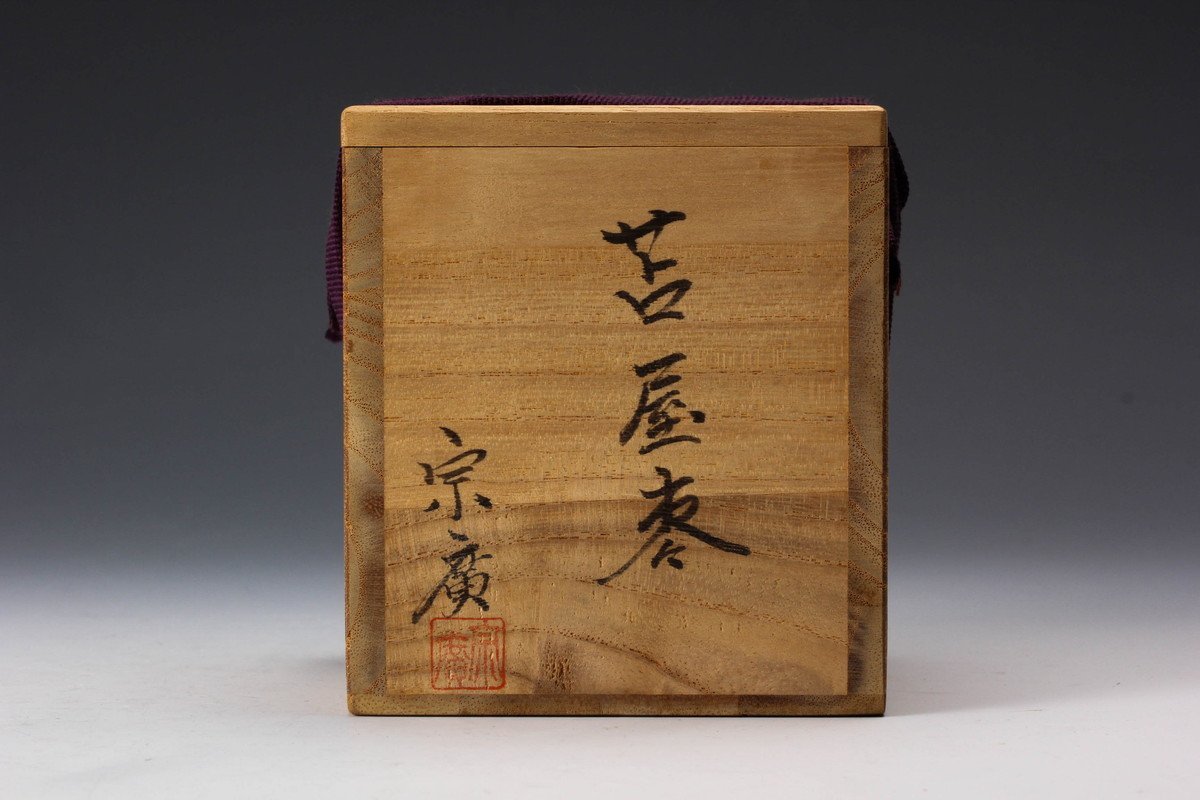 苫屋棗
宗廣
宗廣